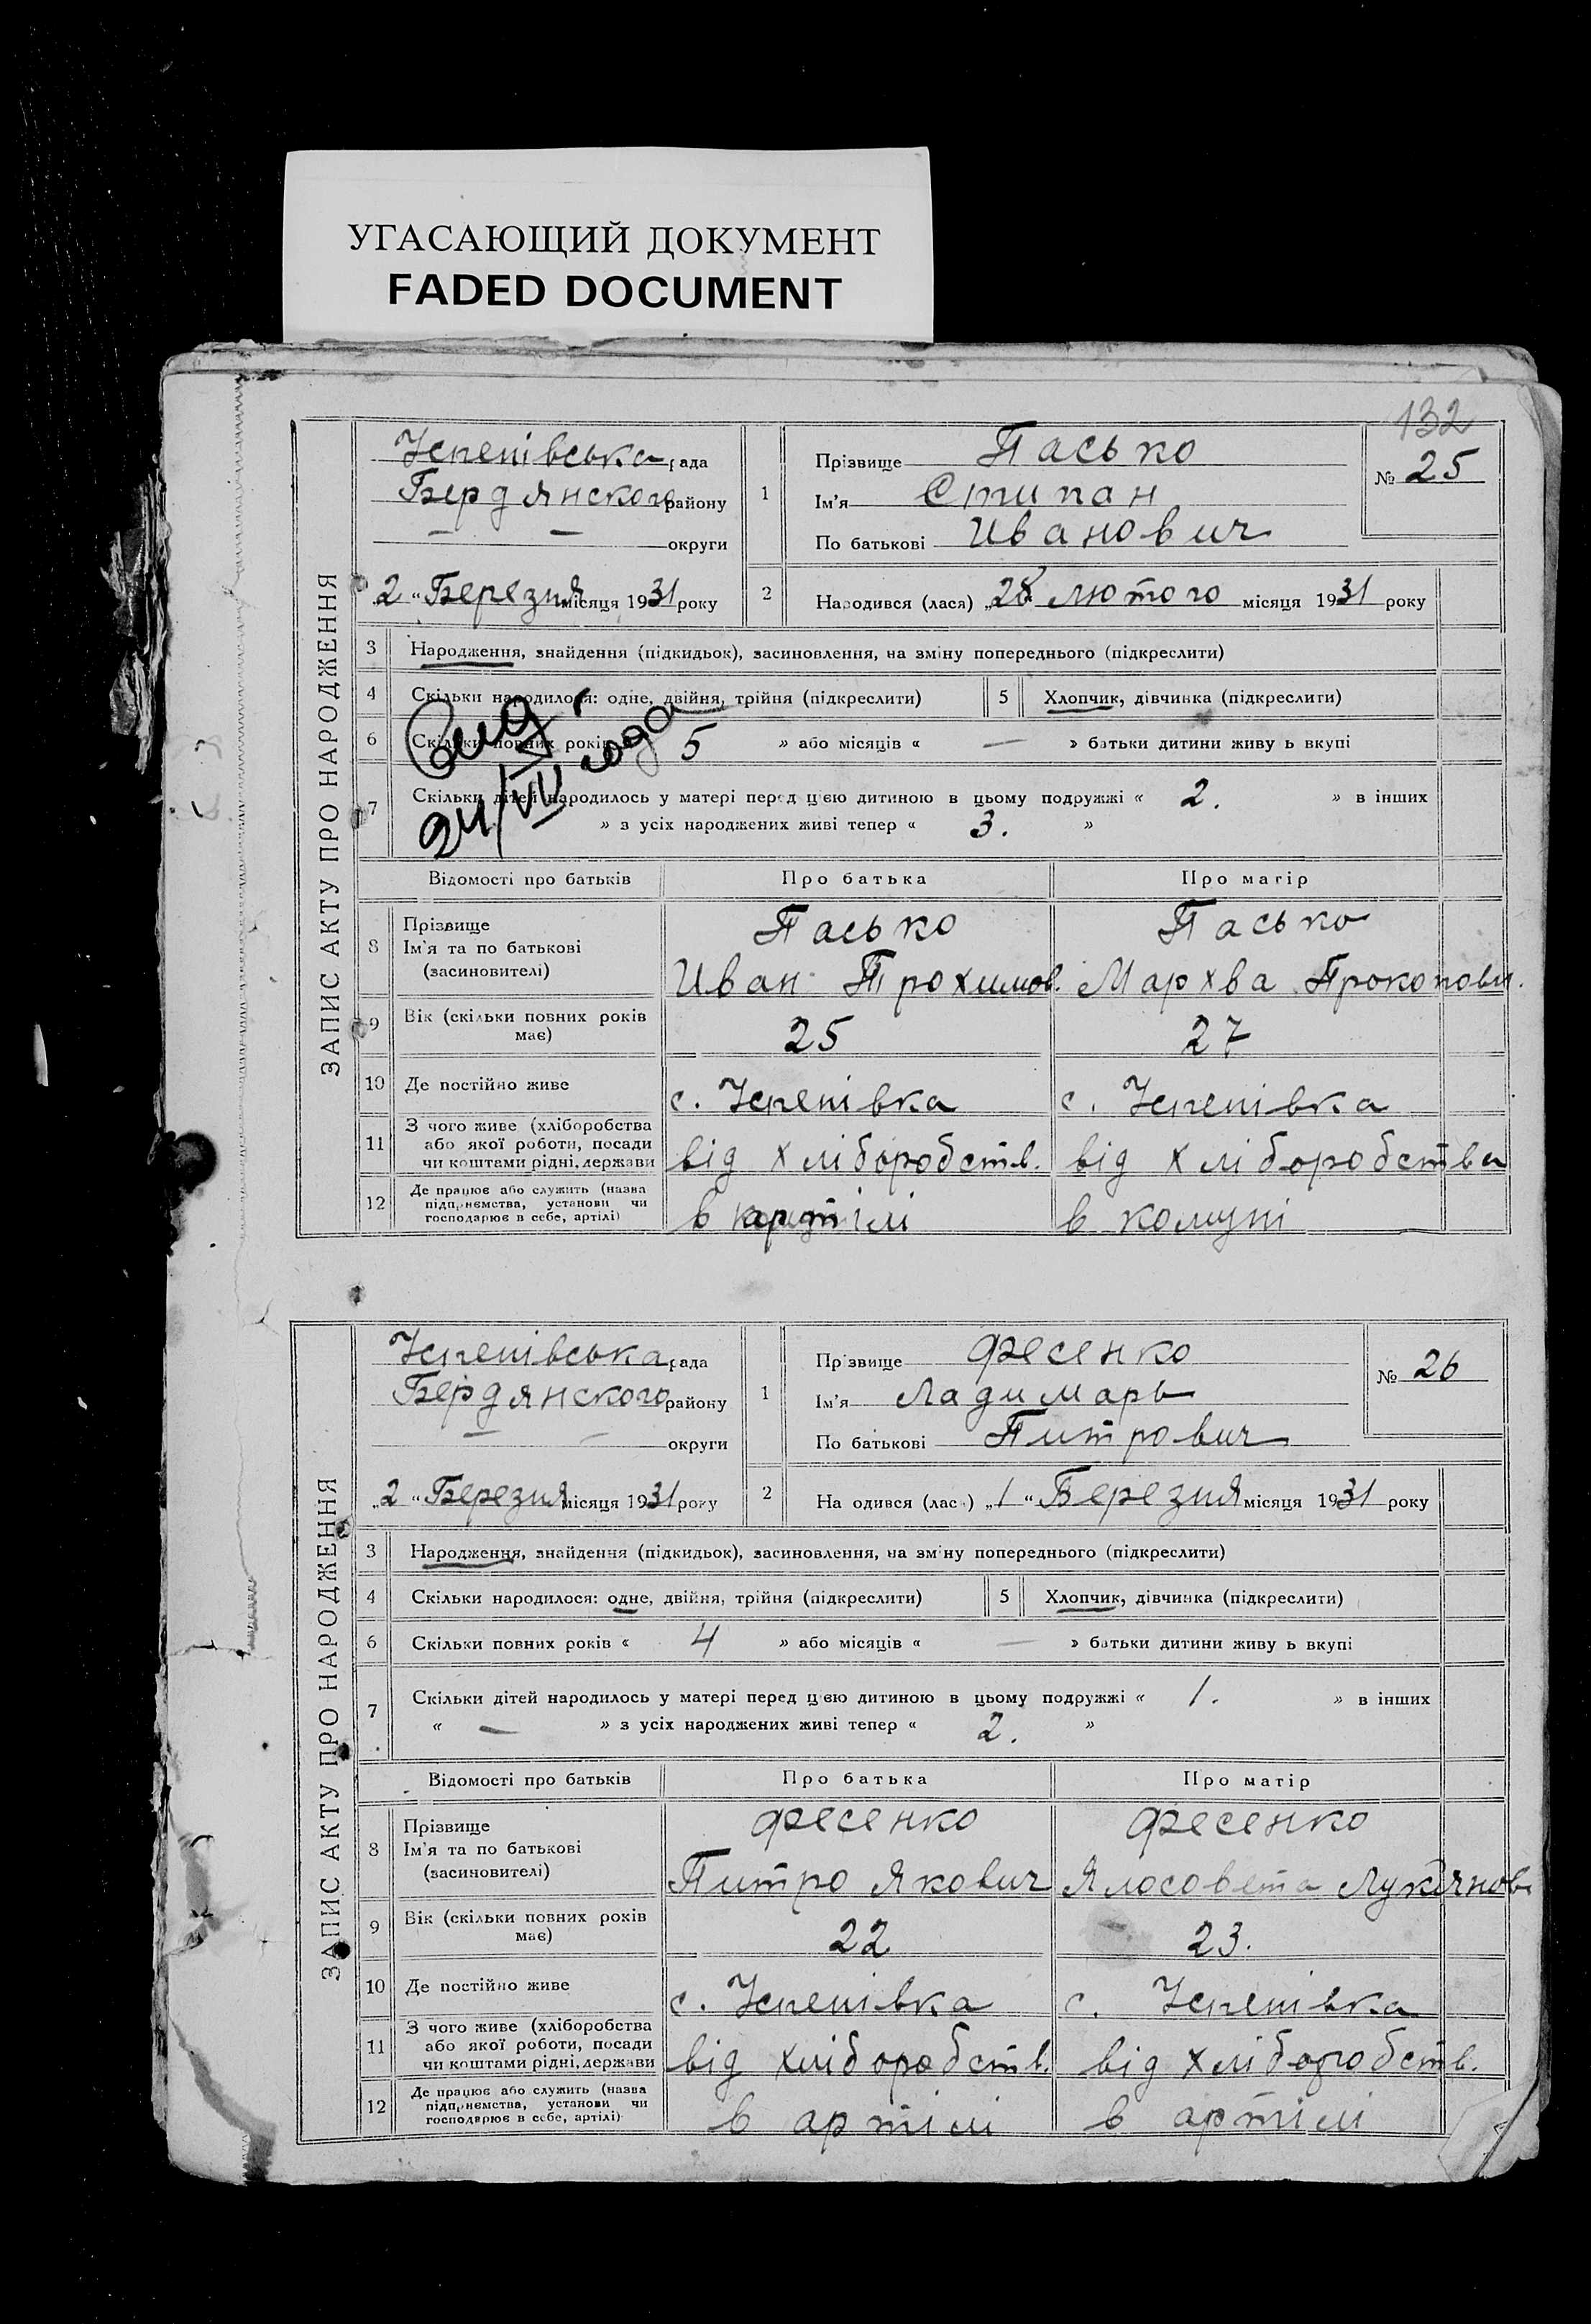 УГАСАЮЩИЙ ДОКУМЕНТ
FADED DOCUMENT
132
ЗАПИС АКТУ ПРО НАРОДЖЕННЯ
Успенівська рада
Бердянского району
— — округи
„2“ Березня місяця 1931 року
1 Прізвище Пасько
Ім'я Стипан
По батькові Иванович
№ 25
2 Народився (лася) „28“ лютого місяця 1931 року
3 Народження, знайдення (підкидьок), засиновлення, на зміну попереднього (підкреслити)
4 Скільки народилося: одне, двійня, трійня (підкреслити) 5 Хлопчик, дівчинка (підкреслити)
6 Скільки повних років 5 » або місяців « — » батьки дитини живу ь вкупі
7 Скільки дітей народилось у матері перед цією дитиною в цьому подружжі « 2. » в інших
» з усіх народжених живі тепер « 3. »
24/VII года
Відомості про батьків Про батька Про матір
8 Прізвище
Ім'я та по батькові
(засиновителі)
Пасько
Иван Трохимов.
Пасько
Мархва Прокопови.
9 Вік (скільки повних років має) 25 27
10 Де постійно живе с. Успенівка с. Успенівка
11 З чого живе (хліборобства
або якої роботи, посади
чи коштами рідні, держави
від хліборобств. від хліборобства
12 Де працює або служить (назва
підприємства, установи чи
господарює в себе, артілі)
в артілі в комуні
ЗАПИС АКТУ ПРО НАРОДЖЕННЯ
Успенівська рада
Бердянского району
— — округи
„2“ Березня місяця 1931 року
1 Прізвище Фесенко
Ім'я Ладимарь
По батькові Питрович
№ 26
2 На одився (лас ) „1“ Березня місяця 1931 року
3 Народження, знайдення (підкидьок), засиновлення, на зміну попереднього (підкреслити)
4 Скільки народилося: одне, двійня, трійня (підкреслити) 5 Хлопчик, дівчинка (підкреслити)
6 Скільки повних років « 4 » або місяців « — » батьки дитини живу ь вкупі
7 Скільки дітей народилось у матері перед цією дитиною в цьому подружжі « 1. » в інших
« — » з усіх народжених живі тепер « 2. »
Відомості про батьків Про батька Про матір
8 Прізвище
Ім'я та по батькові
(засиновителі)
Фесенко
Питро Якович
Фесенко
Ялосовета Лукянов
9 Вік (скільки повних років має) 22 23.
10 Де постійно живе с. Успенівка с. Успенівка
11 З чого живе (хліборобства
або якої роботи, посади
чи коштами рідні, держави
від хліборобств. від хліборобств.
12 Де працює або служить (назва
підприємства, установи чи
господарює в себе, артілі)
в артілі в артілі